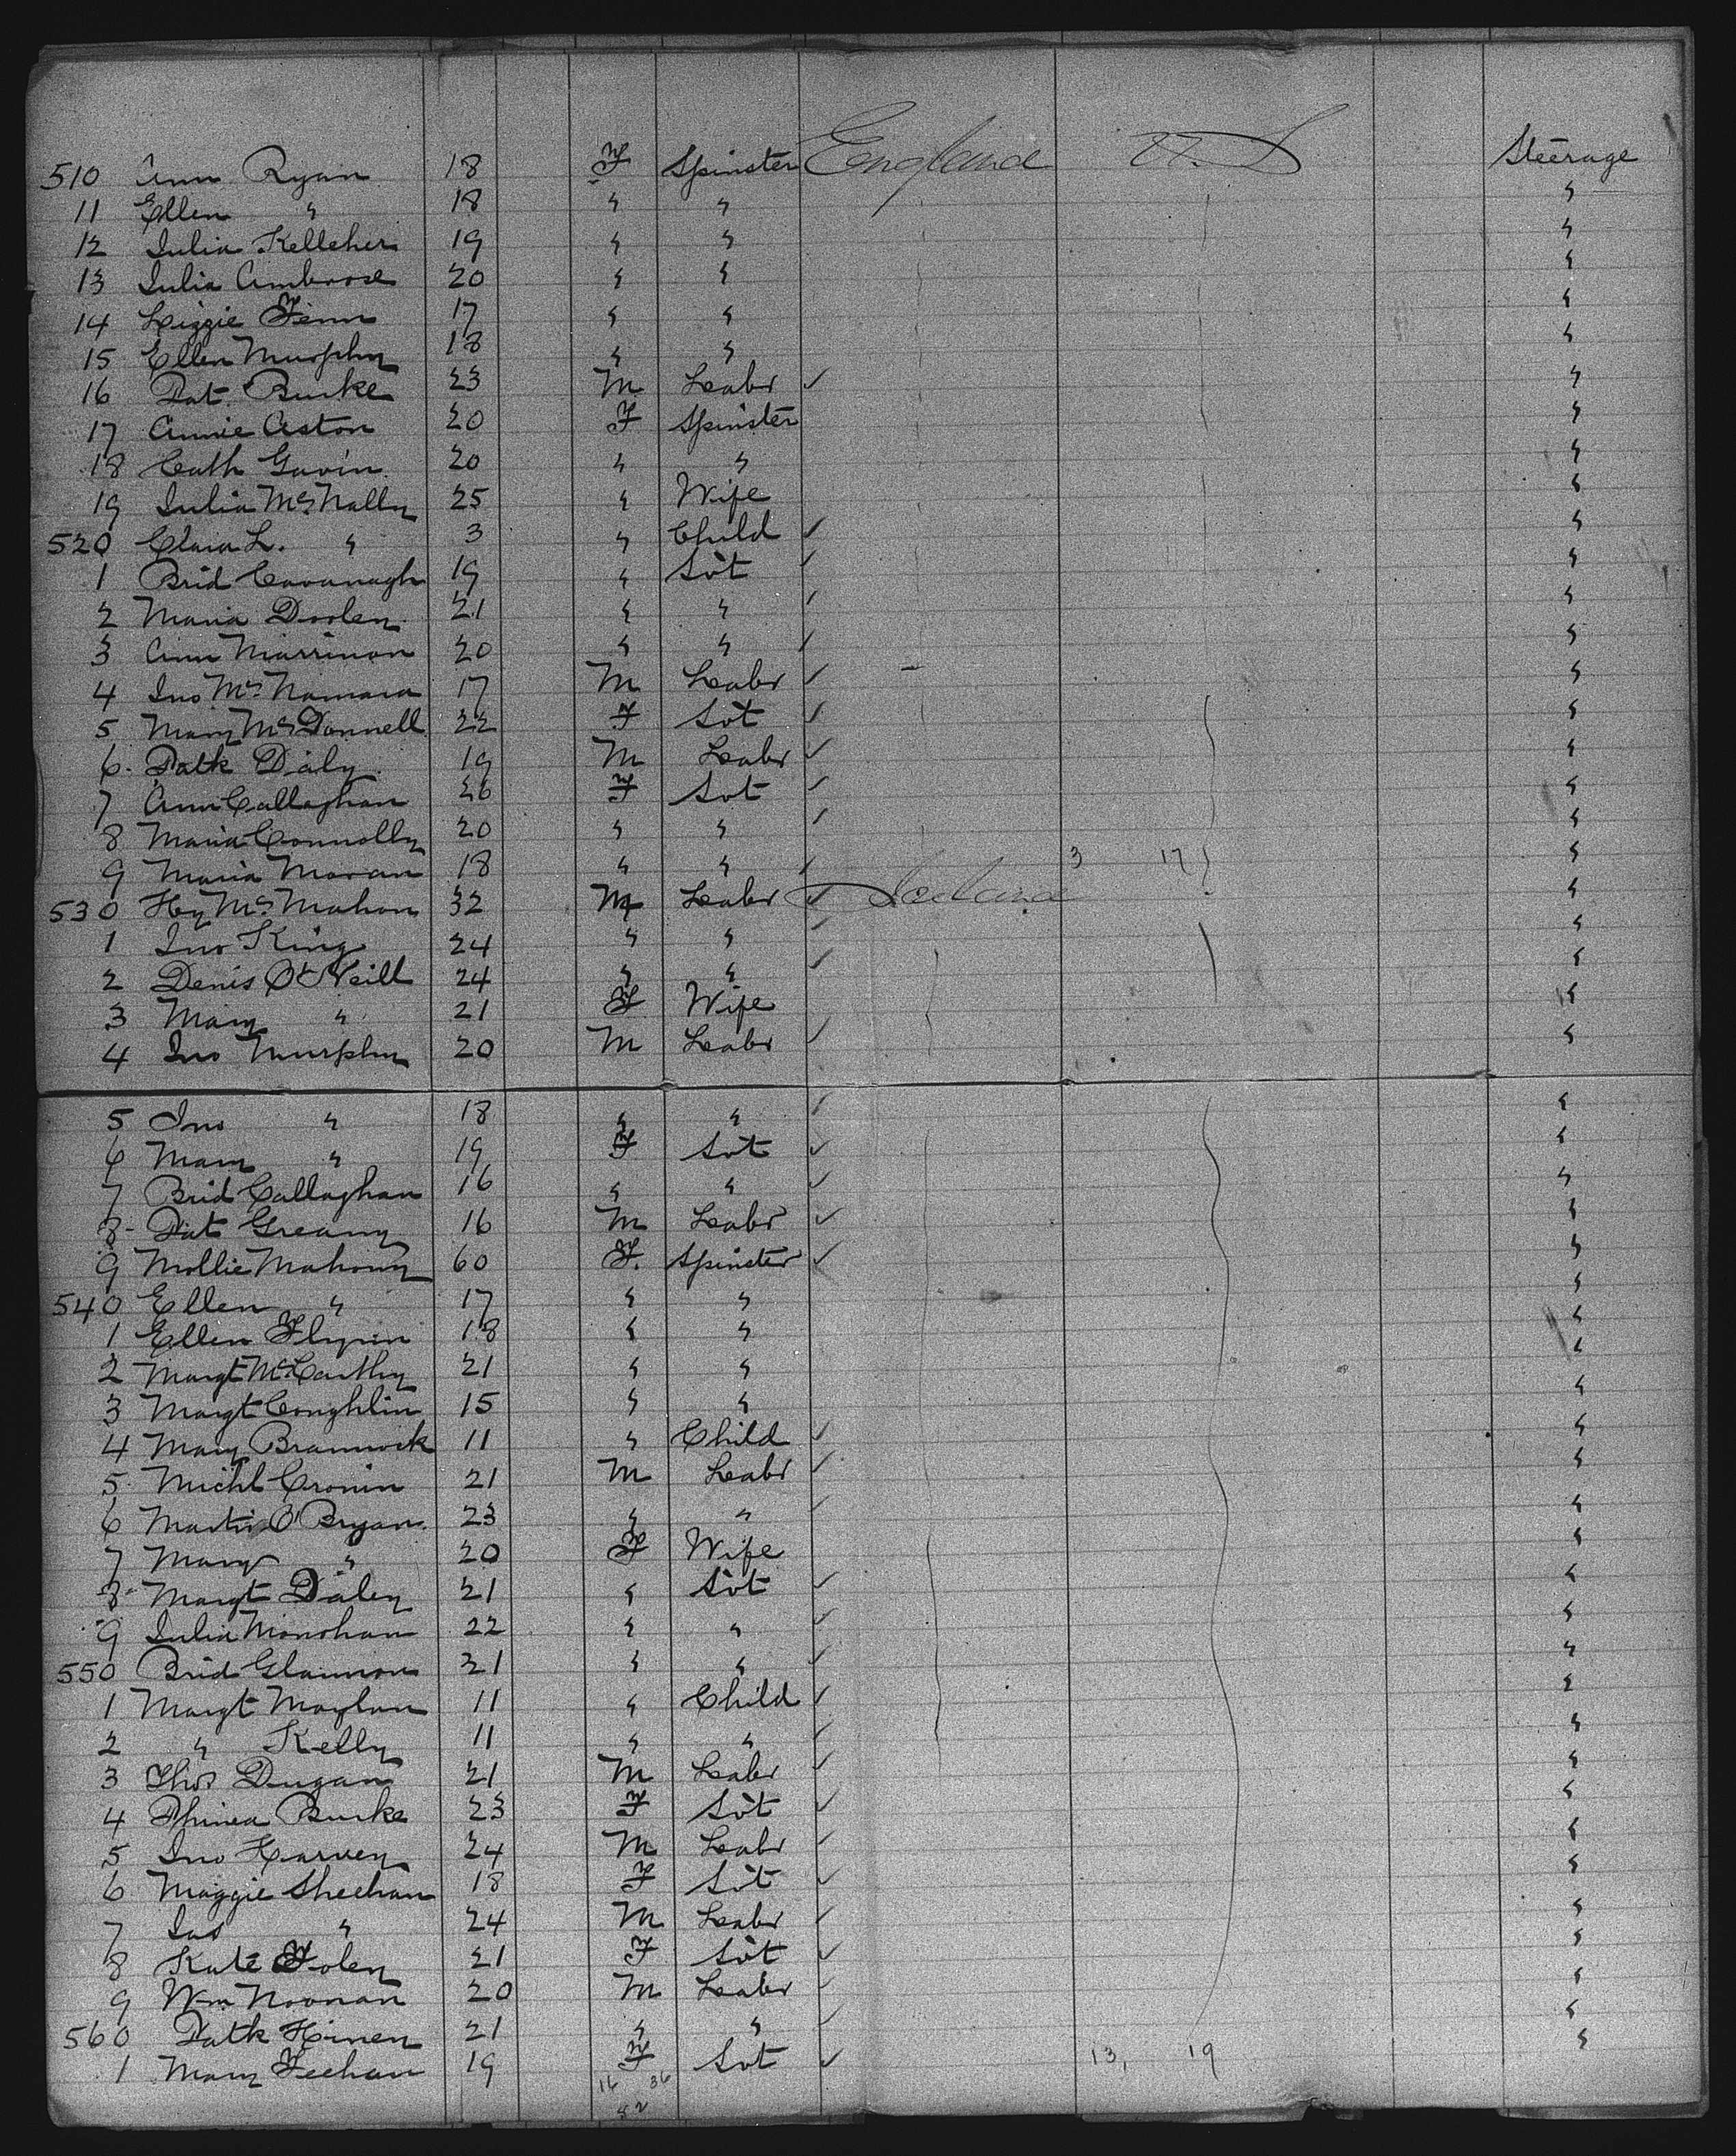 510 Ann Ryan 18 F Spinster England U.S Steerage
11 Ellen " 18 " " "
12 Julia Kelleher 19 " " "
13 Julia Ambrose 20 " " "
14 Lizzie Finn 17 " " "
15 Ellen Murphy 18 " " "
16 Pat Burke 23 M Labr ✓ "
17 Annie Aston 20 F Spinster "
18 Cath Gavin 20 " " "
19 Julia McNally 25 " Wife "
520 Clara L. " 3 " Child ✓ "
1 Brid Cavanagh 19 " Svt ✓ "
2 Maria Dooley 21 " " ✓ "
3 Ann Marrinan 20 " " ✓ "
4 Jno McNamara 17 M Labr ✓ "
5 Mary McDonnell 22 F Svt ✓ "
6 Patk Daly 19 M Labr ✓ "
7 Ann Callaghan 26 F Svt ✓ "
8 Maria Connolly 20 " " ✓ "
9 Maria Moran 18 " " ✓ 3 17 "
530 Hy McMahon 32 M Labr ✓ Ireland "
1 Jno King 24 " " ✓ "
2 Denis O'Neill 24 " " ✓ "
3 Mary " 21 F Wife "
4 Jno Murphy 20 M Labr ✓ "
5 Jno " 18 " " ✓ "
6 Mary " 19 F Svt ✓ "
7 Brid Callaghan 16 " " ✓ "
8 Pat Greany 16 M Labr ✓ "
9 Mollie Mahony 60 F. Spinster ✓ "
540 Ellen " 17 " " "
1 Ellen Flynn 18 " " "
2 Margt McCarthy 21 " " "
3 Margt Coughlin 15 " " "
4 Mary Brannock 11 " Child ✓ "
5 Michl Cronin 21 M Labr ✓ "
6 Martin O'Bryan 23 " " ✓ "
7 Mary " 20 F Wife "
8 Margt Daley 21 " Svt ✓ "
9 Julia Monohan 22 " " ✓ "
550 Brid Glannon 21 " " ✓ "
1 Margt Moylan 11 " Child ✓ "
2 " Kelly 11 " " ✓ "
3 Thos Dugan 21 M Labr ✓ "
4 Burke 23 F Svt ✓ "
5 Jno Harvey 24 M Labr ✓ "
6 Maggie Sheehan 18 F Svt ✓ "
7 Jas " 24 M Labr ✓ "
8 Kate Foley 21 F Svt ✓ "
9 Wm Noonan 20 M Labr ✓ "
560 Patk Hiney 21 " " ✓ "
1 Mary Feehan 19 F Svt ✓ 13, 19 "
16 36
52